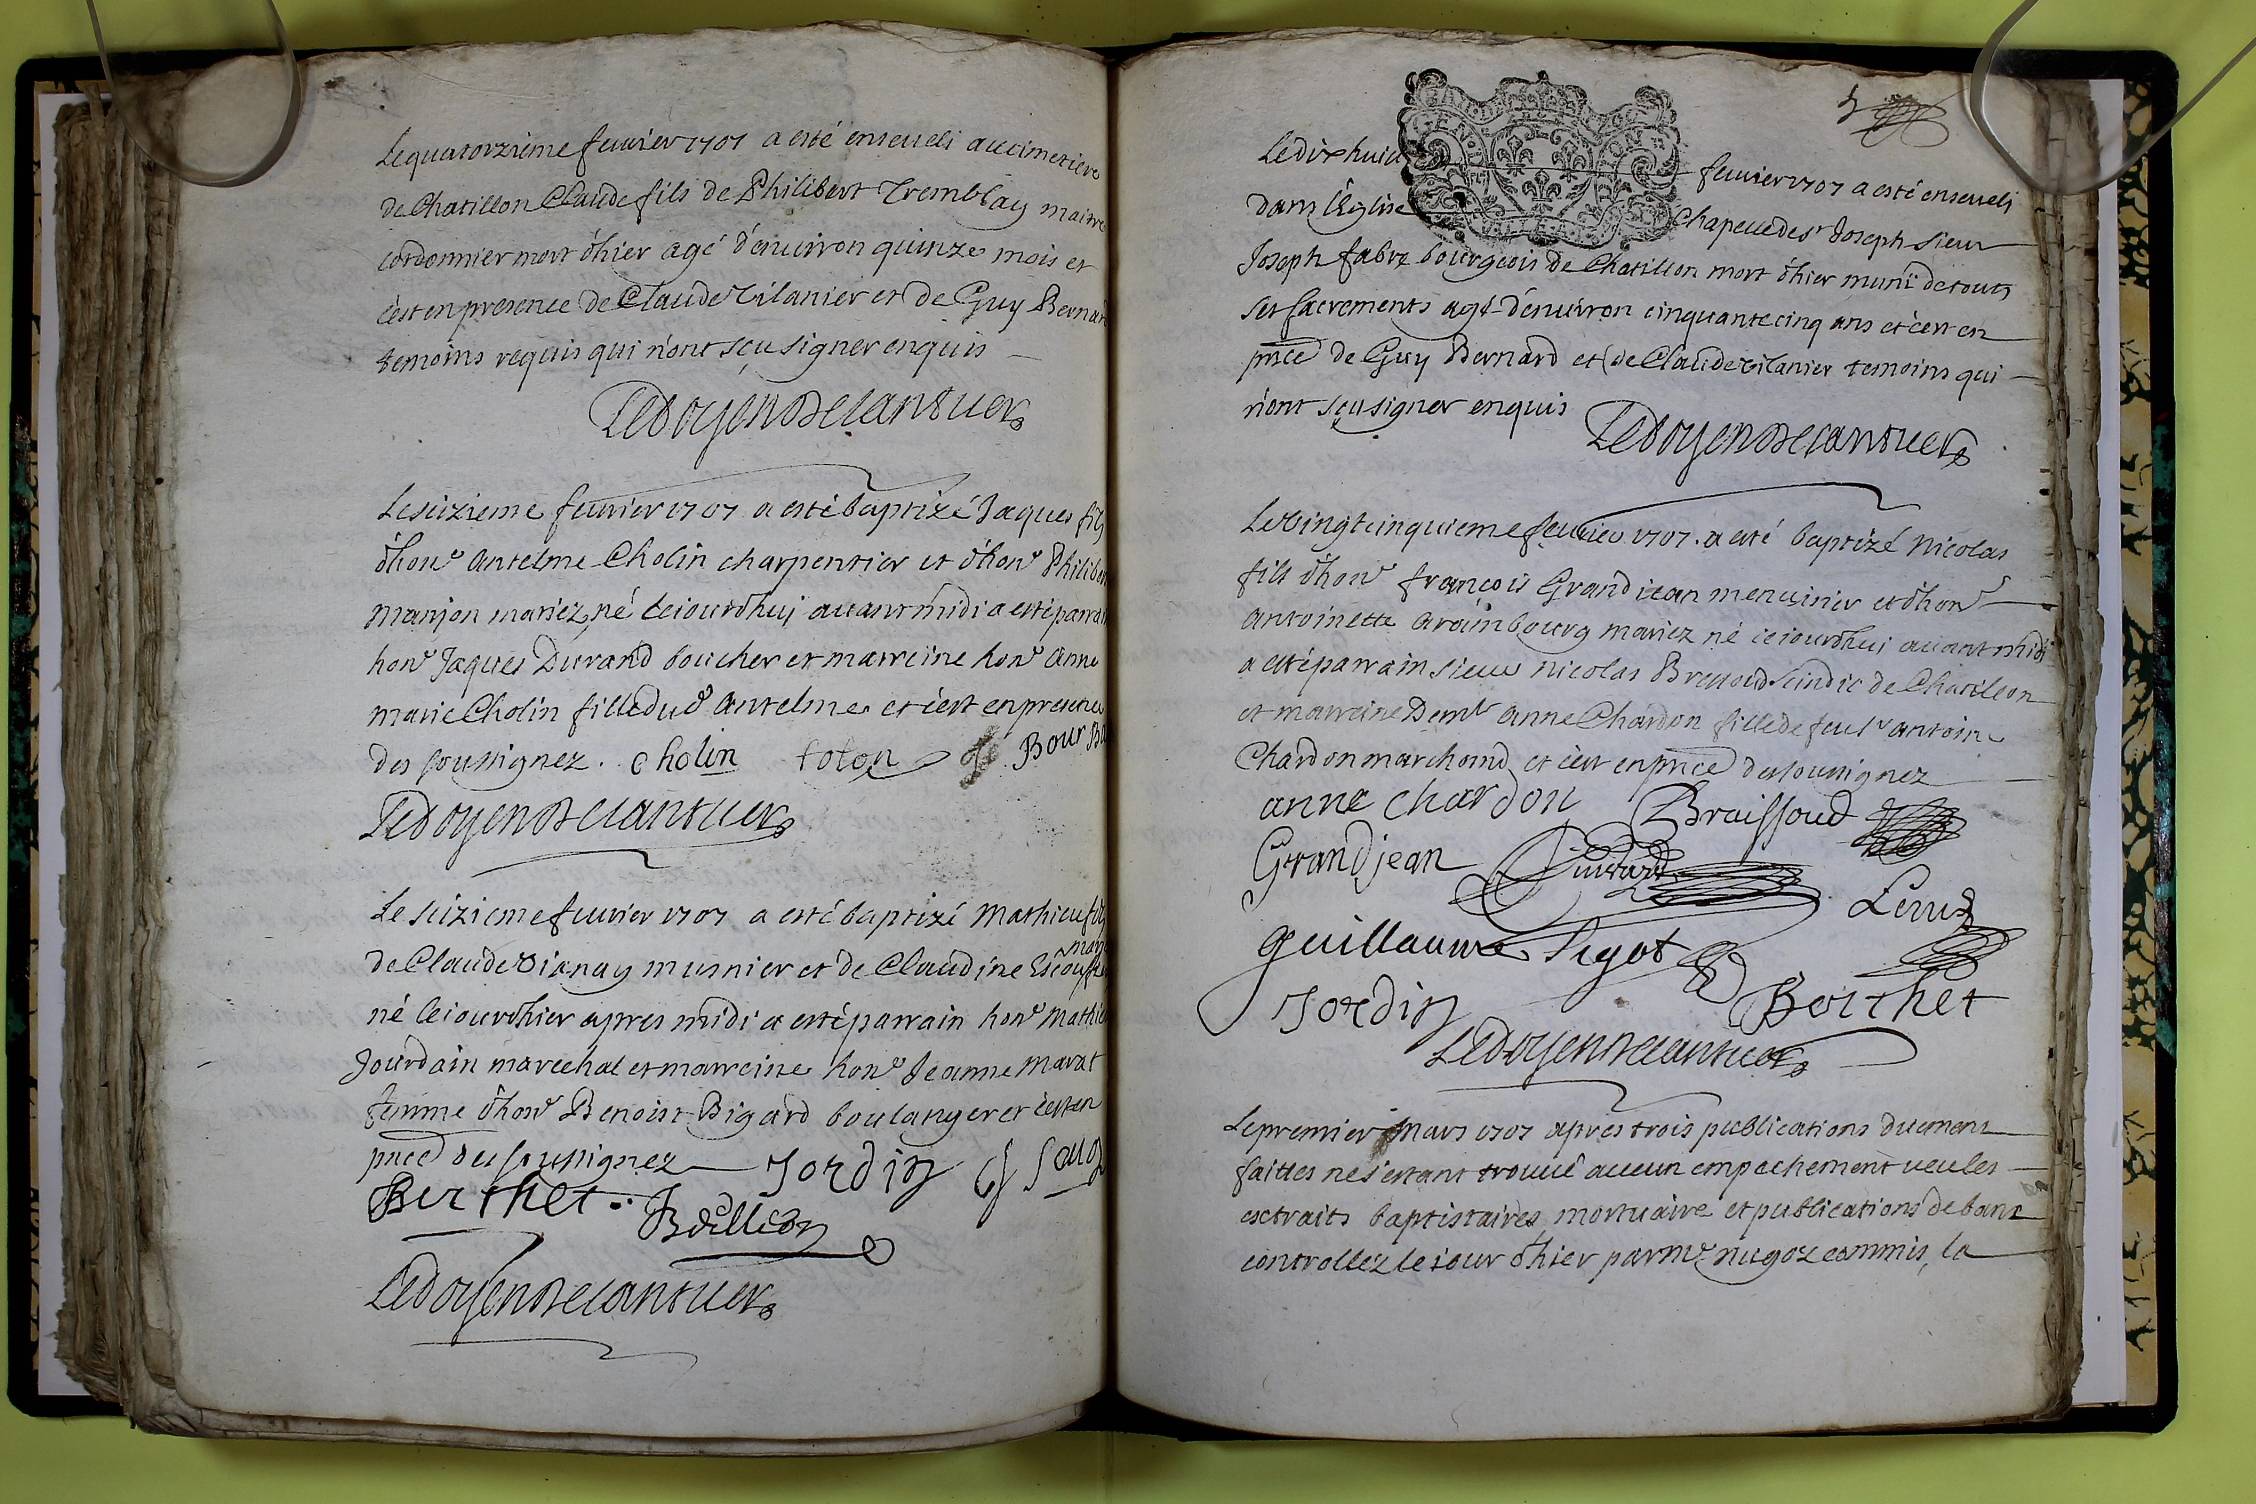 Le quatorzieme feuvrier 1707 a esté enseveli au cimetiere
de Chatillon Claude fils de Philibert Tremblay maitre
cordonnier mort d'hier agé d'environ quinze mois et
c'est en presence de Claude Vilanier et de Guy Bernard
temoins requis qui n'ont sçu signer enquis
Le doyen Delanduer
Le seizieme feuvrier 1707 a esté baptizé Jaques fils
d'hon^e Antelme Cholin charpentier et d'hon^e Philiber
Manjon mariez, né ce iourd'huj avant midi a esté parrain
hon^e Jaques Durand boucher et marreine hon^e Anne
Marie Cholin fille dud^t Antelme et c'est en presence
des soussignez. Cholin Bour
Le doyen Delanduer
Le seizieme feuvrier 1707 a esté baptizé Mathieu fils
de Claude Vianay musnier et de Claudine
né ce iour d'hier apres midi a esté parrain hon^e Mathieu
Jourdain marechal et marreine hon^e Jeanne Marat
femme d'hon^e Benoist Bigard boulanger et c'est en
pnce des soussignez Jordin
Berthet
Le doyen Delanduer
Le dixhuit feuvrier 1707 a esté enseveli
dans l'Église chapelle de s^t Joseph sieur
Joseph Fabre bourgeois de Chatillon mort d'hier muni de touts
ses sacrements agé d'environ cinquante cinq ans et c'est en
pnce de Guy Bernard et de Claude Vilanier temoins qui
n'ont sçu signer enquis
Le doyen Delanduer
Le vingt cinquieme feuvrier 1707. a esté baptizé Nicolas
fils d'hon^e François Grandiean menuisier et d'hon^e
Antoinette Arambourg mariez né ce iourd'hui avant midi
a esté parrain sieur Nicolas Bressoud scindic de Chatillon
et marreine Dem^le Anne Chardon fille de feu s^r Antoine
Chardon marchand et c'est en pnce des soussignez
anne chardon Braissoud
Grandjean
guillaume Sigot
Jordin Berthet
Le doyen Delanduer
Le premier Mars 1707 apres trois publications duement
faittes ne s'estant trouvé aucun empechement veu les
extraits baptistaires, mortuaire et publications de bans
controllez le iour d'hier par M^e Nugoz commis, la